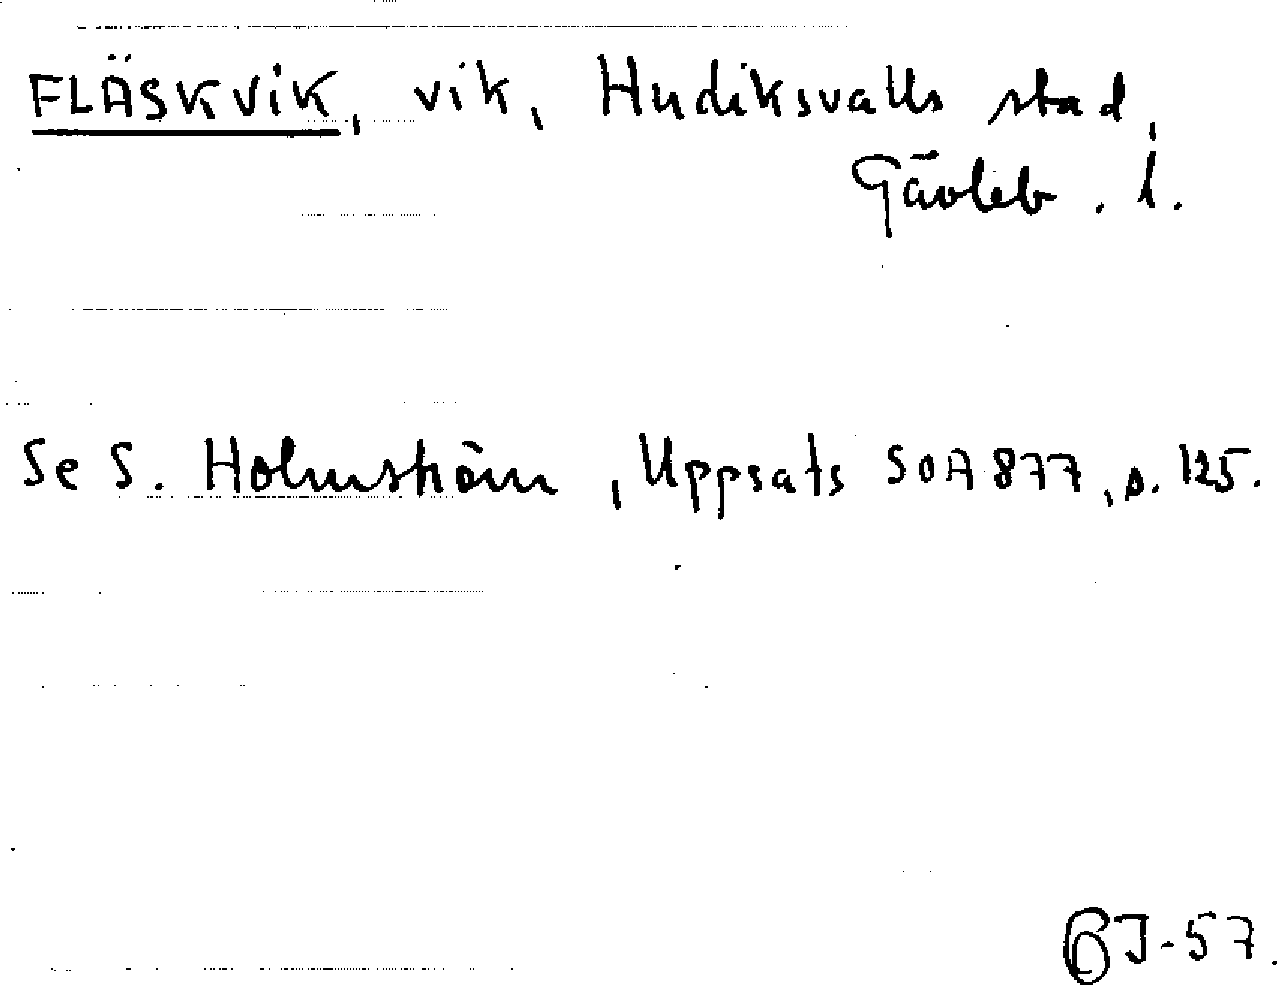 FLÄSKVIK, vik, Hudiksvalls stad,
Gävleb. l.
Se S. Holmström, Uppsats SOA 877, s. 125.
BJ-57.